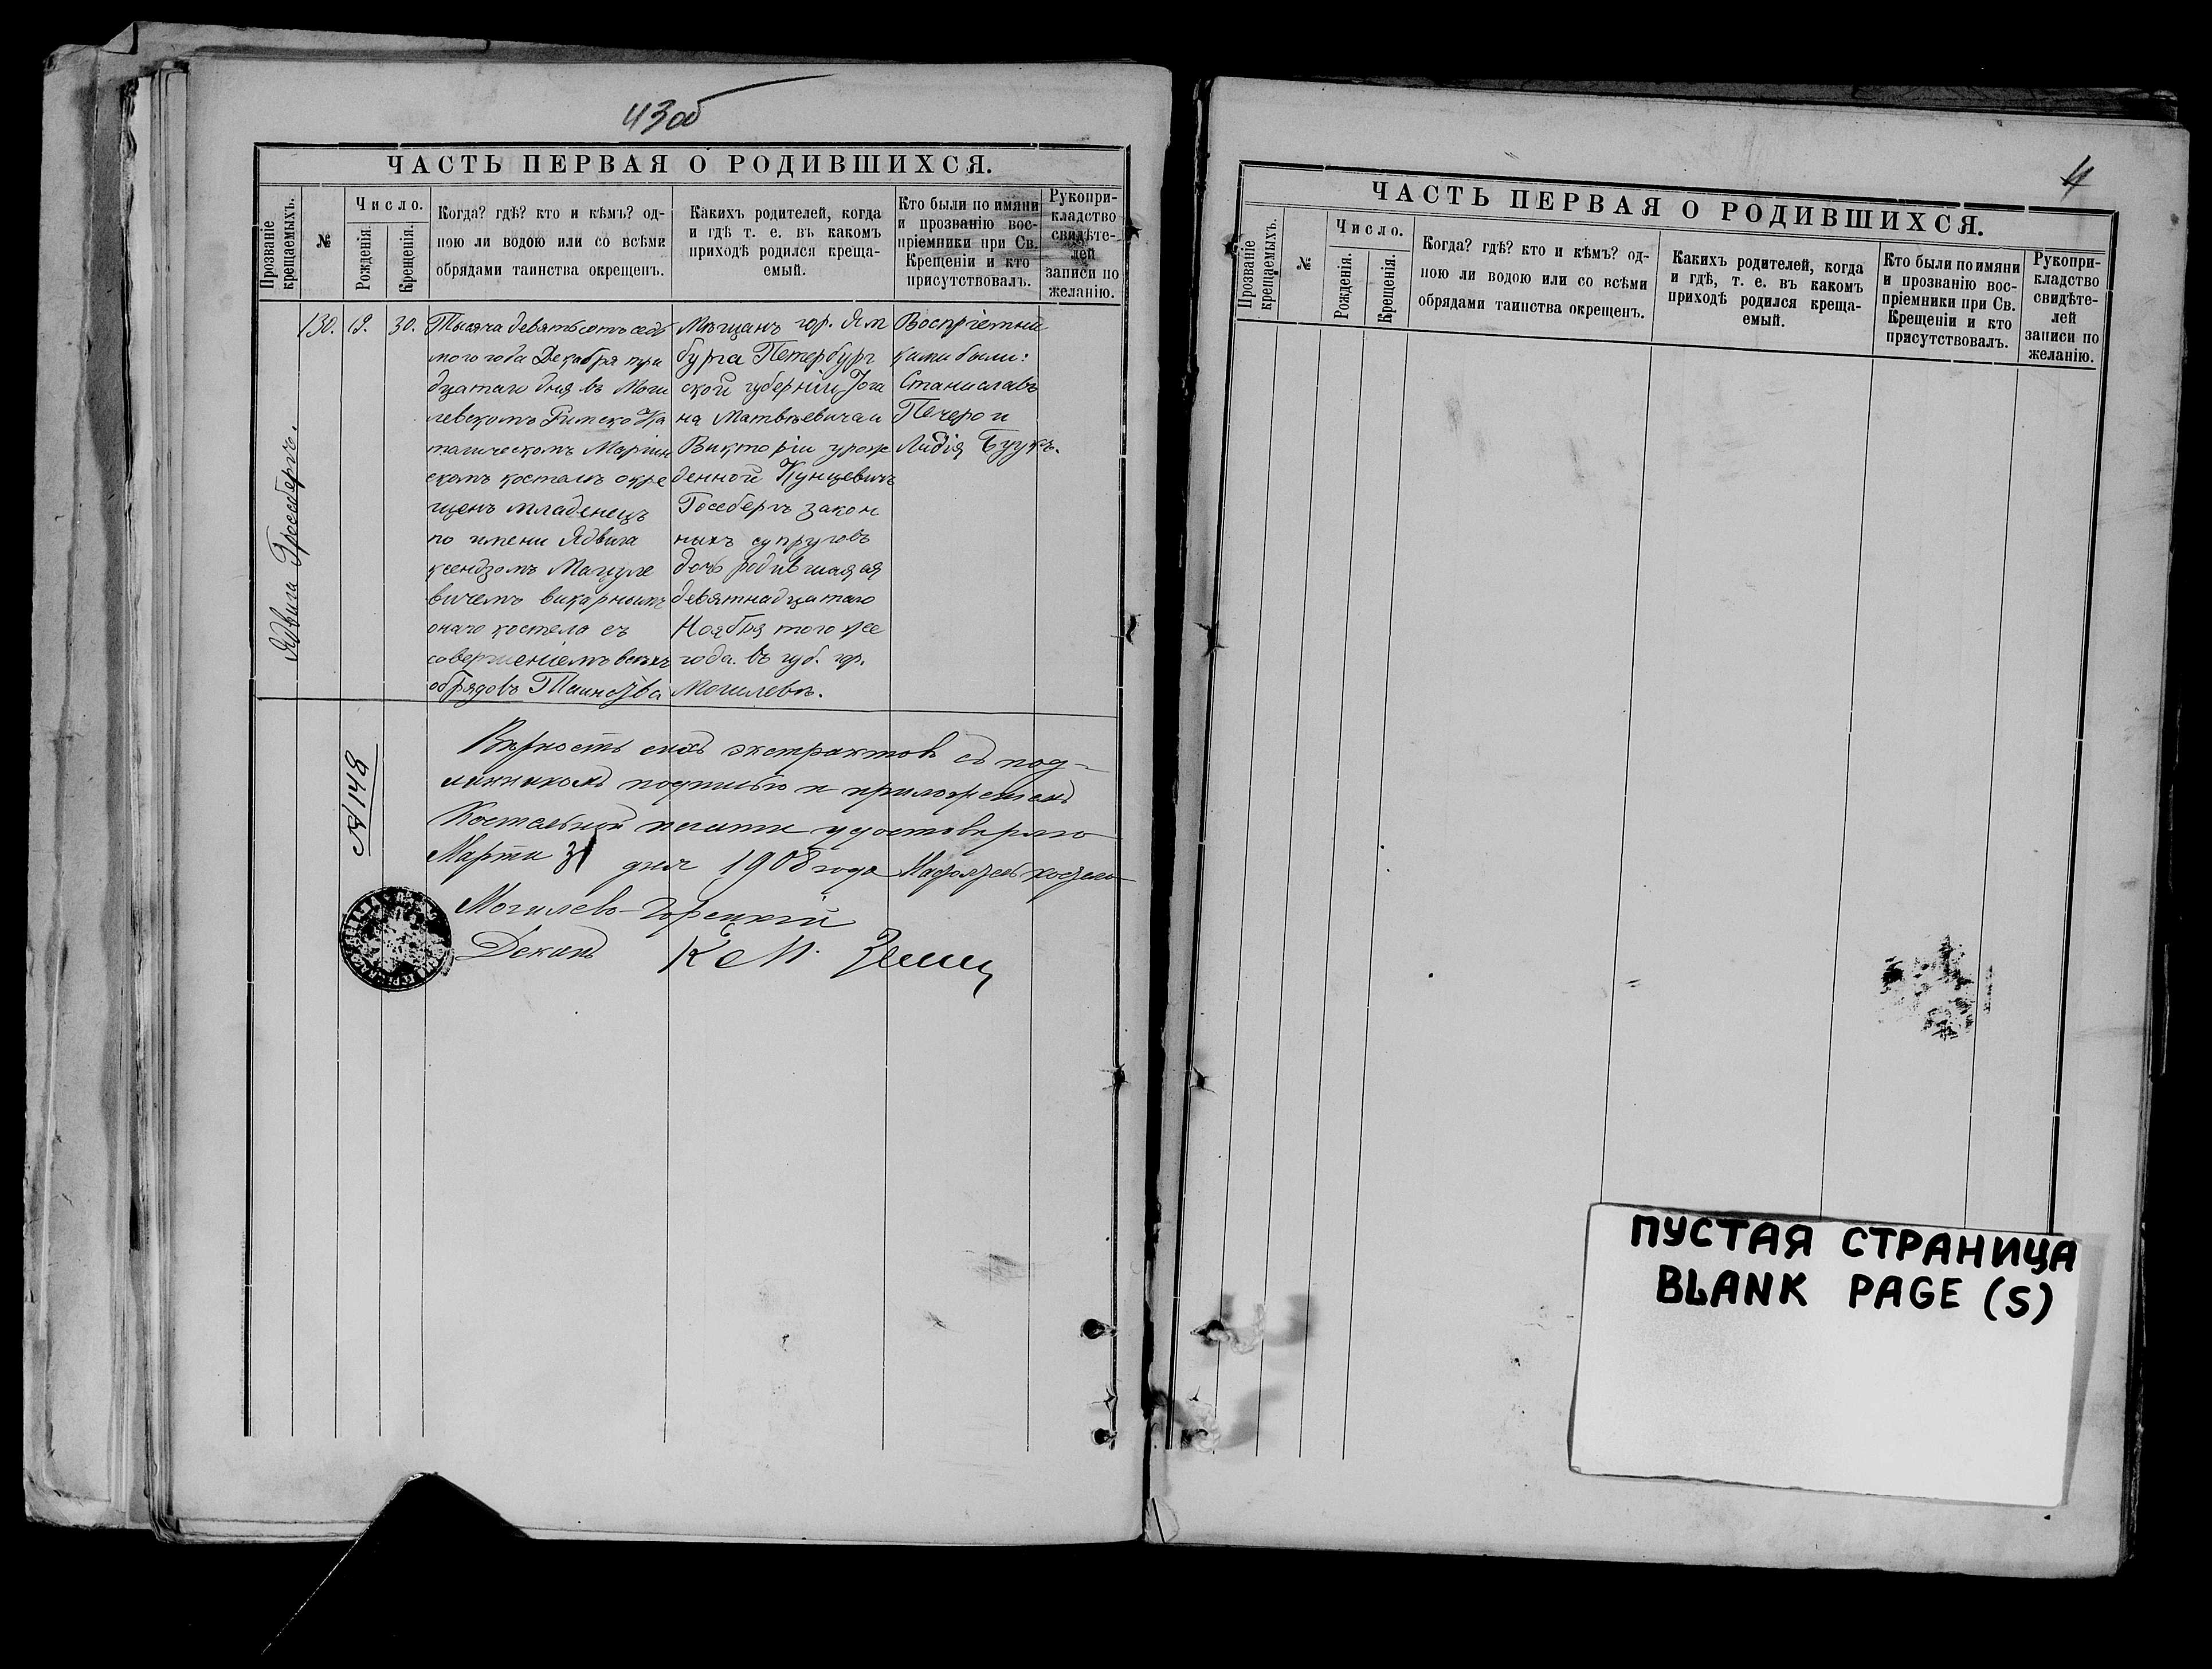 43об
ЧАСТЬ ПЕРВАЯ О РОДИВШИХСЯ.
Прозваніе крещаемыхъ.
№
Число.
Рожденія.
Крещенія.
Когда? гдѣ? кто и кѣмъ? од-
ною ли водою или со всѣми
обрядами таинства окрещенъ.
Какихъ родителей, когда
и гдѣ т. е. въ какомъ
приходѣ родился креща-
емый.
Кто были по имяни
и прозванію вос-
пріемники при Св.
Крещеніи и кто
присутствовалъ.
Рукопри-
кладство
свидѣте-
лей
записи по
желанію.
Ядвига Гроссбергъ.
130.
19.
30.
Тысяча девятьсотъ седь
мого года Декабря три
дцатаго дня въ Моги
левскомъ Римско Ка
толическомъ Маріин
скомъ костелѣ окре
щенъ младенецъ
по имени Ядвига
ксендзомъ Мацуле
вичемъ викарнымъ
онаго костела съ
совершеніемъ всѣхъ
обрядовъ Таинства
Мѣщанъ гор. Ям
бурга Петербург
ской губерніи Іога
на Матвѣевича и
Викторіи урож
денной Кунцевичъ
Госсбергъ закон
ныхъ супруговъ
дочь родившаяся
девятнадцатаго
Ноября того же
года въ губ. гор.
Могилевѣ.
Воспріемни
ками были:
Станиславъ
Печеро и
Лидія Буукъ.
№ 148
Вѣрность сихъ экстрактовъ съ под-
линникомъ подписью и приложеніемъ
Костельной печати удостовѣряю
Марта 31 дня 1908 года
Могилево-Горецкій
Деканъ
ЧАСТЬ ПЕРВАЯ О РОДИВШИХСЯ.
Прозваніе крещаемыхъ.
№
Число.
Рожденія.
Крещенія.
Когда? гдѣ? кто и кѣмъ? од-
ною ли водою или со всѣми
обрядами таинства окрещенъ.
Какихъ родителей, когда
и гдѣ, т. е. въ какомъ
приходѣ родился креща-
емый.
Кто были по имяни
и прозванію вос-
пріемники при Св.
Крещеніи и кто
присутствовалъ.
Рукопри-
кладство
свидѣте-
лей
записи по
желанію.
ПУСТАЯ СТРАНИЦА
BLANK PAGE (S)